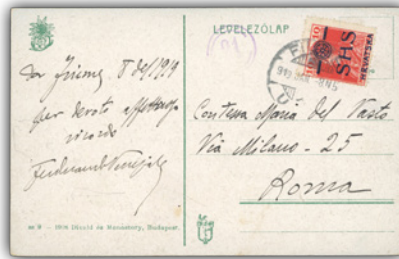 LEVELEZŐLAP
Da Fiume, 8 dec 1919
per devoto affettuoso
ricordo
SHS
HRVATSKA
Contessa Maria Del Vasto
Via Milano - 25
Roma
Divald és Monostory, Budapest.